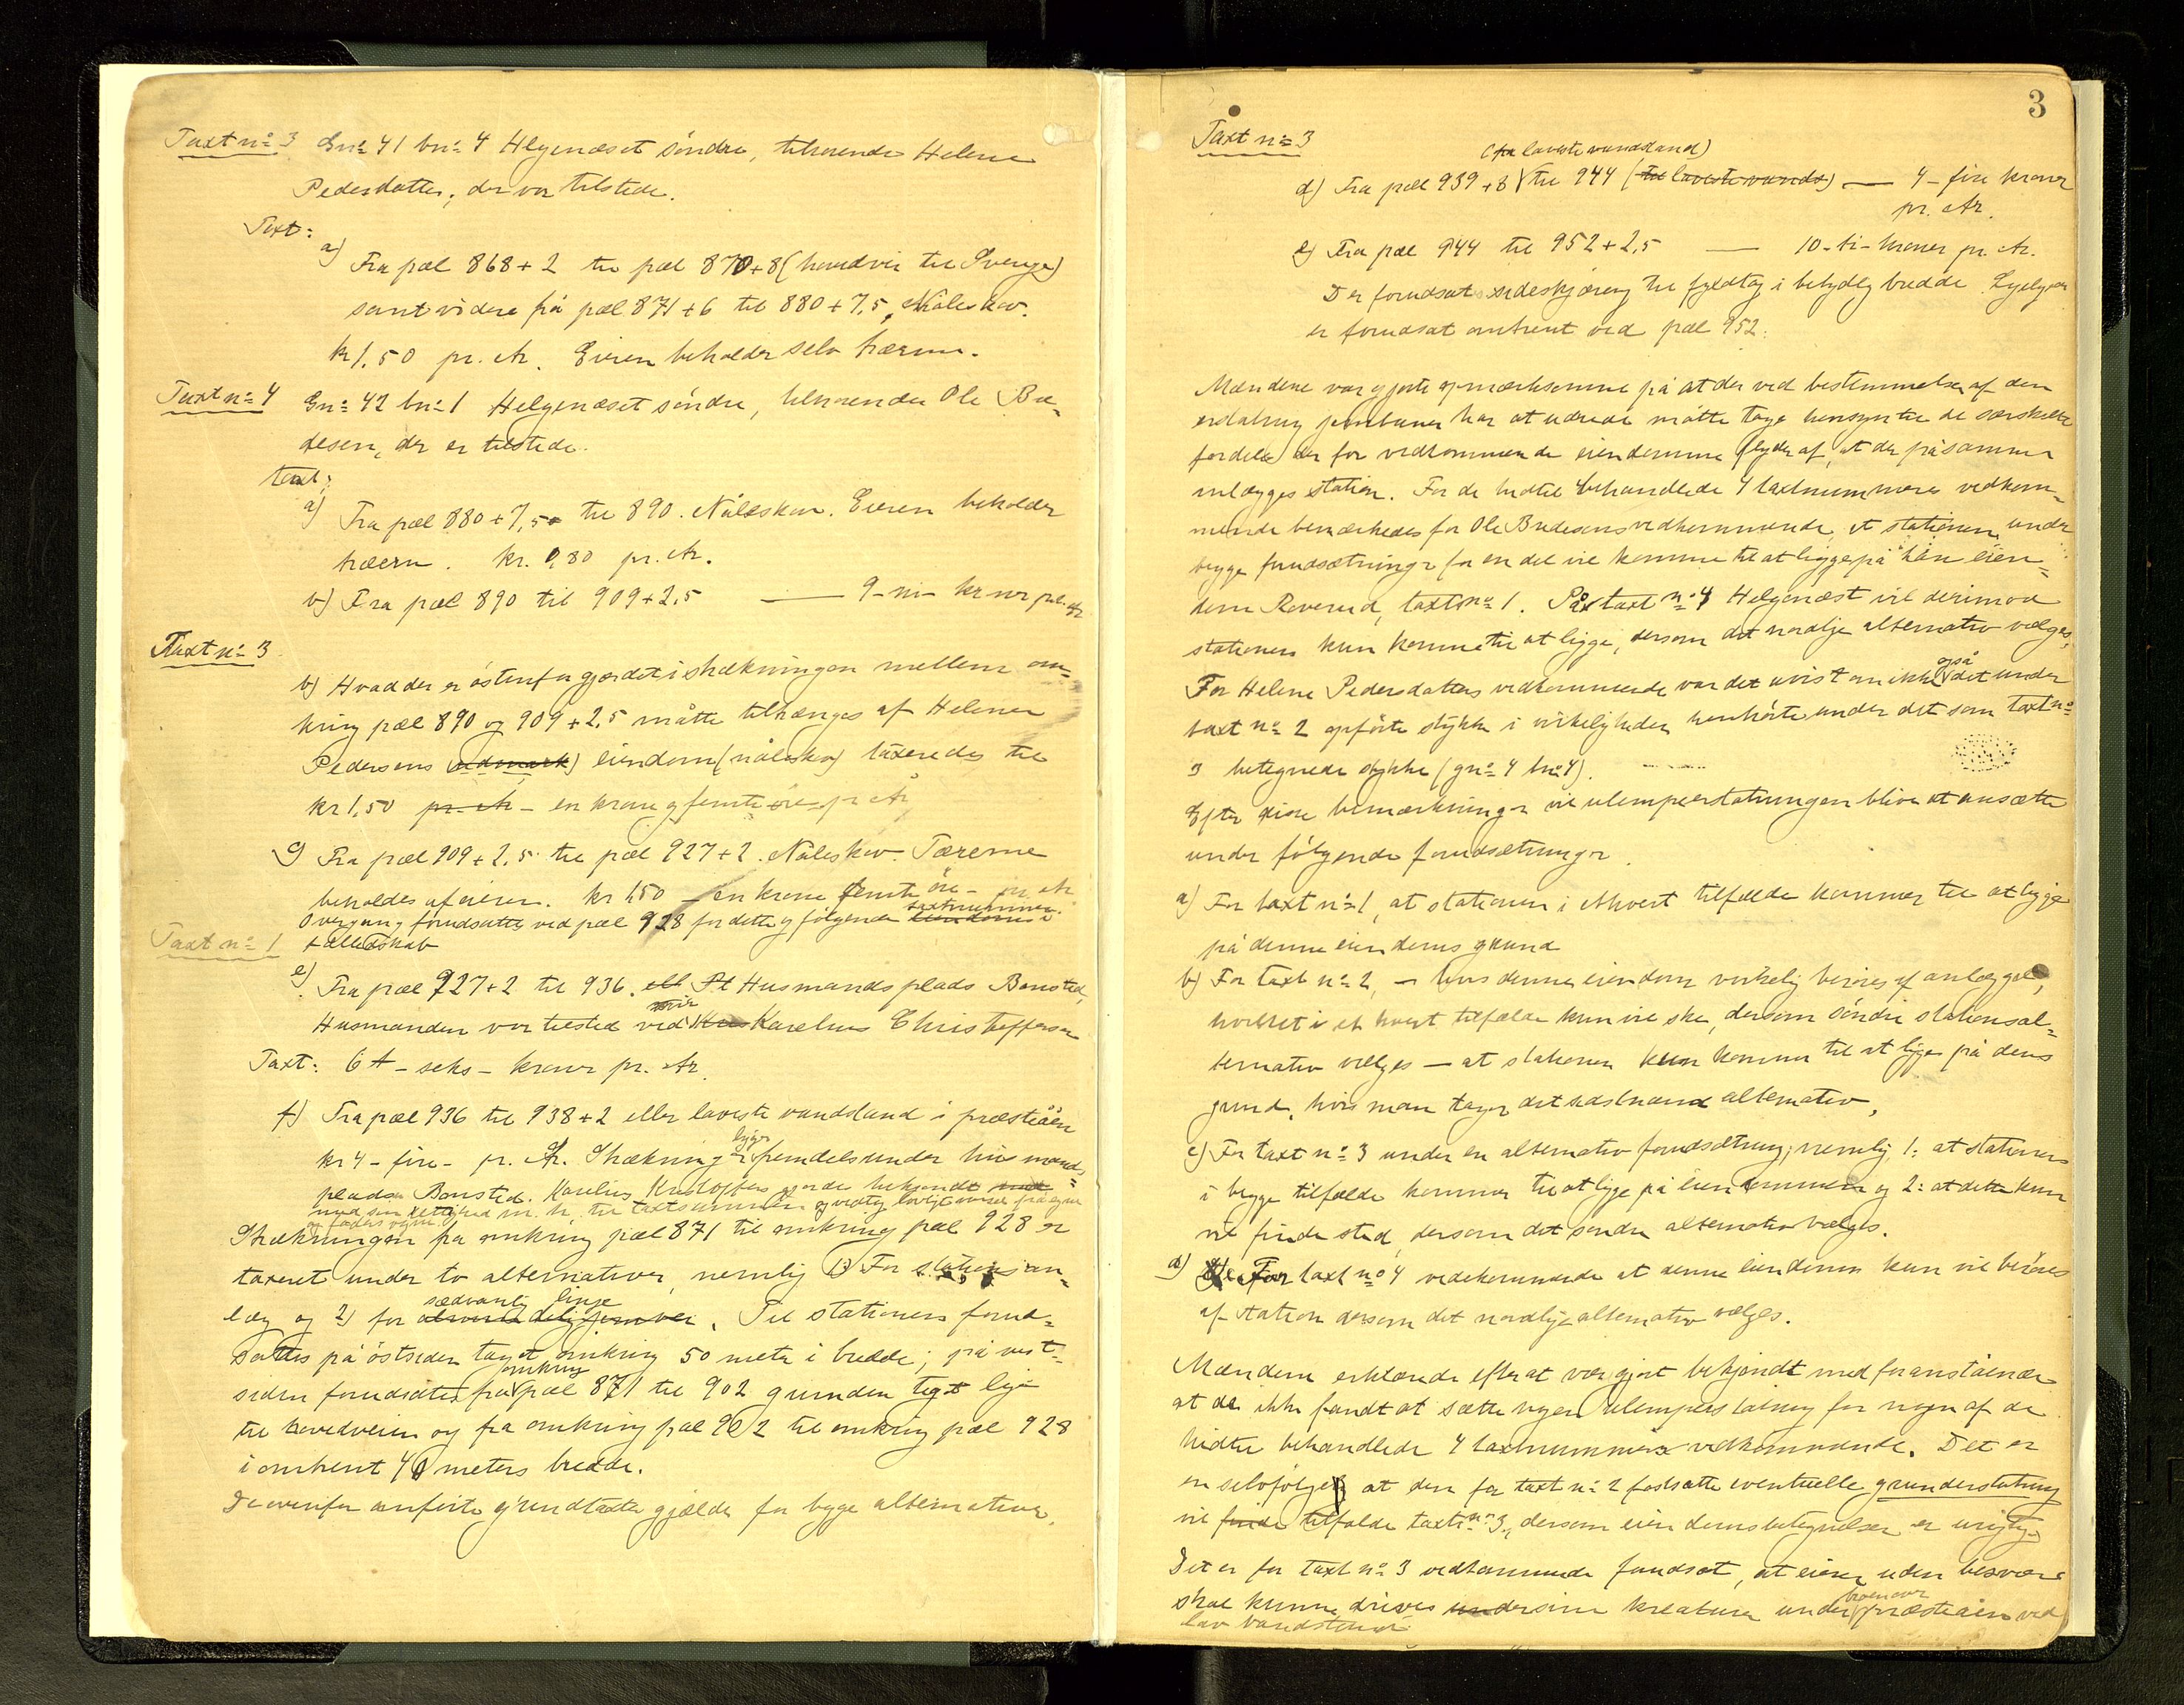 Taxt no 3 Gno 41 bno 4 Helgenæset söndre, tilhørende Helene
Pedersdatter, der var tilstede.
Taxt:
a) Fra pæl 868 + 2 til pæl 870 + 8 (hovedvei til Sverige)
samt videre fra pæl 871 + 6 til 880 + 7,5, Nåleskov.
kr 1,50 pr. Ar. Eieren beholder selv trærne.
Taxt no 4 Gno 42 bno 1 Helgenæset söndre, tilhørende Ole Bre-
desen, der er tilstede.
taxt:
a) Fra pæl 880 + 7,5 til 890. Nåleskov. Eieren beholder
trærne. kr. 0,80 pr. Ar.
b) Fra pæl 890 til 909 + 2,5 — 9 - ni - kroner pr. ar
Taxt no 3
b) Hvad der er östenfor gjerdet i strækningen mellem om-
kring pæl 890 og 909 + 2,5 måtte tilhænges af Helene
Pedersens (udmark) eiendom (nåleskov) taxeredes til
kr 1,50 pr. Ar - en krone og femti öre - pr Ar
c) Fra pæl 909 + 2,5 til pæl 927 + 2. Nåleskov. Tærerne
beholdes af eieren. kr 1,50 - en krone femti öre - pr Ar
Overgang forudsættes ved pæl 928 for dette og følgende taxtnummer eiendomme
Taxt no 1 i fælledskab
e) Fra pæl 927 + 2 til 936. ell Pl Husmandsplads Bonsted,
Husmanden var tilsted ved Kar Karelius Christoffersen
Taxt: 6 A - seks - kroner pr. Ar.
f) Fra pæl 936 til 938 + 2 eller laveste vandstand i præstiåen
kr 4 - fire - pr. Ar. Strækningen ligger fremdeles under husmands-
pladsen Bonsted. Karelius Kristoffers gjorde bekjendt med
med sin rettighed m. h. til taxtsummen og vedtog lovligt varsel på egne
og faders vegne
Strækningen fra omkring pæl 871 til omkring pæl 928 er
taxeret under to alternativer, nemlig 1) For stationsan-
læg og 2) for sædvanlig linje almindelig jernvei. Til stationen forud-
sættes på östsiden taget omkring 50 meter i bredde; på vest-
siden forudsættes fra omkring pæl 871 til 902 grunden taget lige
til hovedveien og fra omkring pæl 902 til omkring pæl 928
i omtrent 40 meters bredde.
De ovenfor anførte grundtaxter gjælder for begge alternativer.
3
Taxt no 3
(fra laveste vandstand)
d) Fra pæl 939 + 8 til 944 (til laveste vands) — 4 - fire kroner
pr. Ar.
e) Fra pæl 944 til 952 + 2,5 — 10 - ti - kroner pr. Ar.
Der er forudsat sideskjæring til fyldtag i betydelig bredde.
er forudsat omtrent ved pæl 952.
Mændene var gjorte opmærksomme på at der ved bestemmelsen af den
erstatning jernbanen har at udrede måtte tage hensyn til de særskilte
fordele der for vedkommende eiendomme flyder af, at der på samme
anlægges station. For de hidtil behandlede 4 taxtnummere vedkom-
mende bemærkedes for Ole Bredesens vedkommende, at stationen under
begge forudsætninger for en del vil komme til at ligge på hans eien-
dom Reverud, taxt no 1. På taxt no 4 Helgenæset vil derimod
stationen kun komme til at ligge, dersom det nordlige alternativ vælges,
For Helene Pedersdatters vedkommende var det uvist om ikke også det under
taxt no 2 opførte stykke i virkeligheden henhörte under det som taxt no
3 betegnede stykke (gno 4 bno 4).
Efter disse bemærkninger vil ulempeerstatningen blive at ansætte
under følgende forudsætninger.
a) For taxt no 1, at stationen i ethvert tilfælde kommer til at ligge
på denne eiendoms grund
b) For taxt no 2, - hvis denne eiendom virkelig beröres af anlægget,
hvilket i et hvert tilfælde kun vil ske, dersom söndre stationsal-
ternativ vælges — at stationen kun kommer til at ligge på dens
grund, hvis man tager det sidstnævnte alternativ,
c) For taxt no 3 under en alternativ forudsætning, nemlig 1: at stationen
i begge tilfælde kommer til at ligge på eiendommen og 2: at dette kun
vil finde sted, dersom det søndre alternativ vælges.
d) For taxt no 4 vedkommende at denne eiendom kun vil beröres
af station dersom det nordlige alternativ vælges.
Mændene erklærede efter at være gjort bekjendt med foranstående
at de ikke fandt at sætte nogen ulempeerstatning for nogen af de
hidtil behandlede 4 taxtnummere vedkommende. Det er
en selvfølge at den for taxt no 2 fastsatte eventuelle grunderstatning
vil finde tilfalde taxt no 3, dersom eiendomsbetegnelsen er urigtig.
Det er for taxt no 3 vedkommende forudsat, at eieren uden besvær
skal kunne drives under sine kreaturer under broen over præstiåen ved
lav vandstand